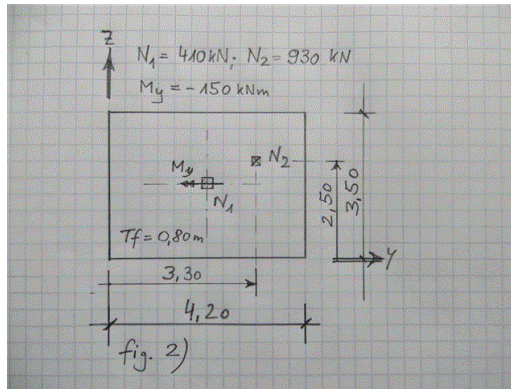 Z
N₁ = 410 kN; N₂ = 930 kN
My = -150 kNm
My
N₂
N₁
2,50
3,50
Tf = 0,80m
Y
3,30
4,20
fig. 2)